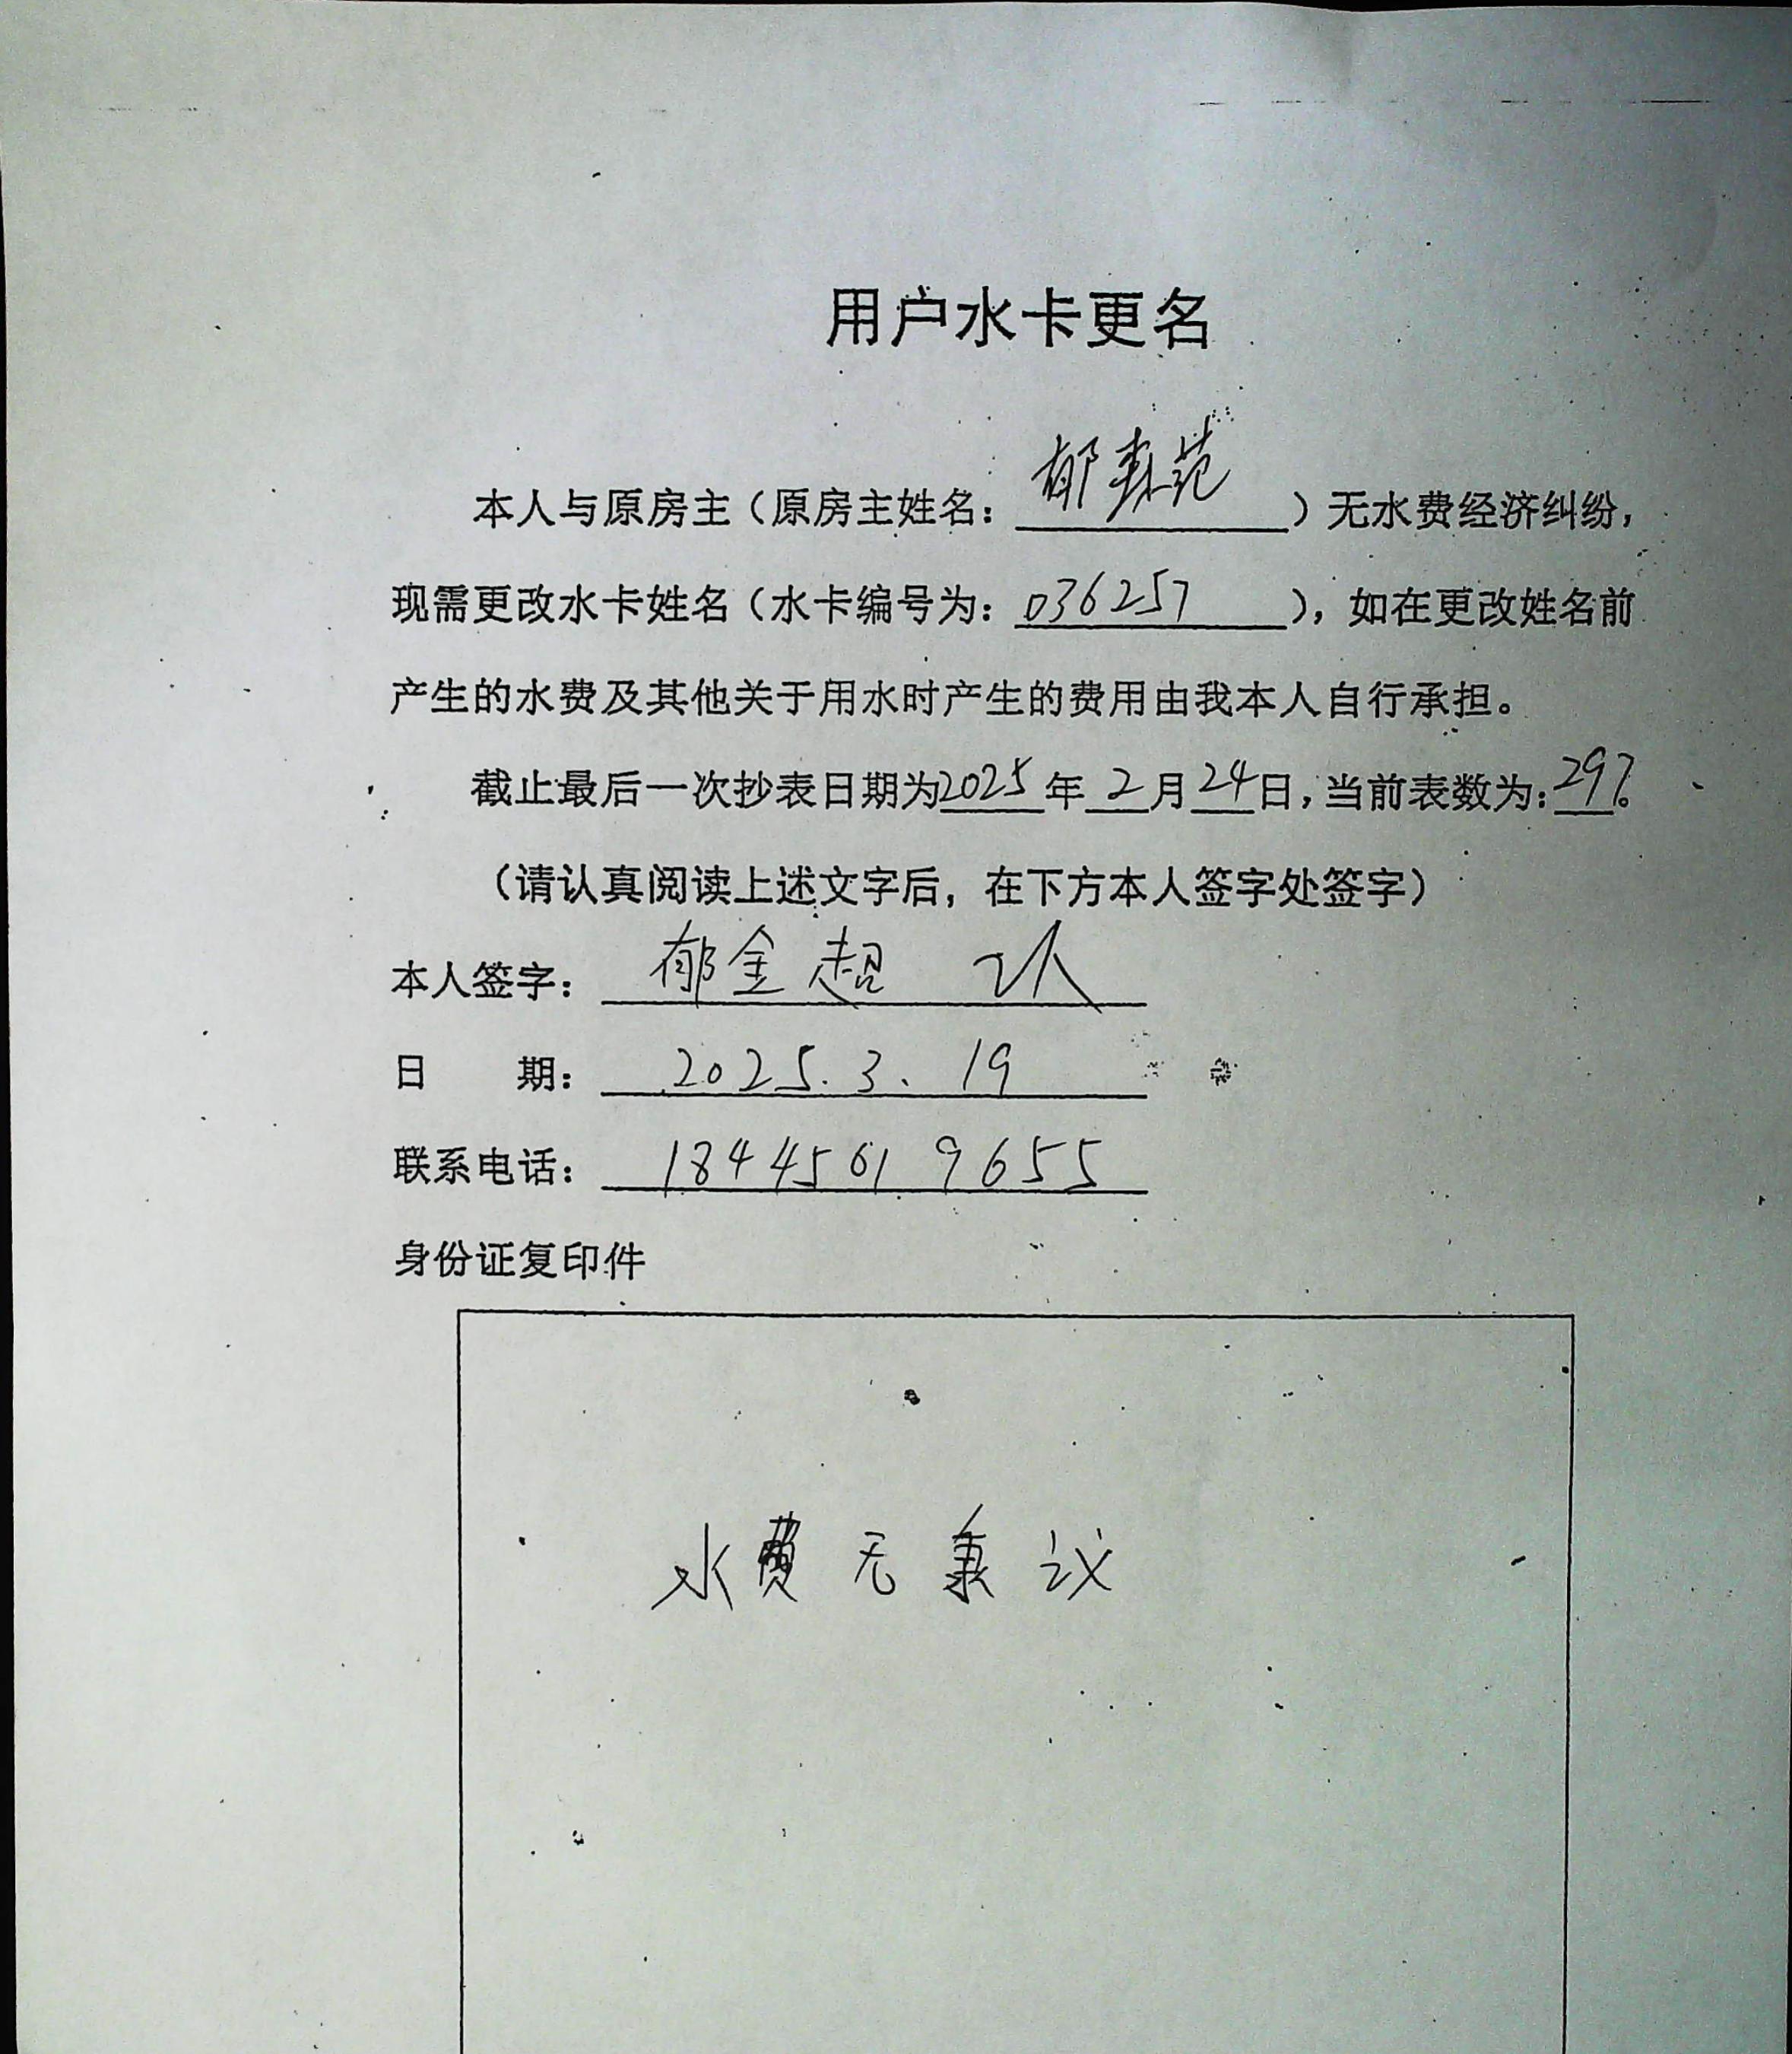 用户水卡更名
本人与原房主（原房主姓名：郁春范）无水费经济纠纷，
现需更改水卡姓名（水卡编号为：036257），如在更改姓名前
产生的水费及其他关于用水时产生的费用由我本人自行承担。
截止最后一次抄表日期为2025年2月24日，当前表数为：297。
（请认真阅读上述文字后，在下方本人签字处签字）
本人签字：郁金超
日 期：2025.3.19
联系电话：18445619655
身份证复印件
水费无 议